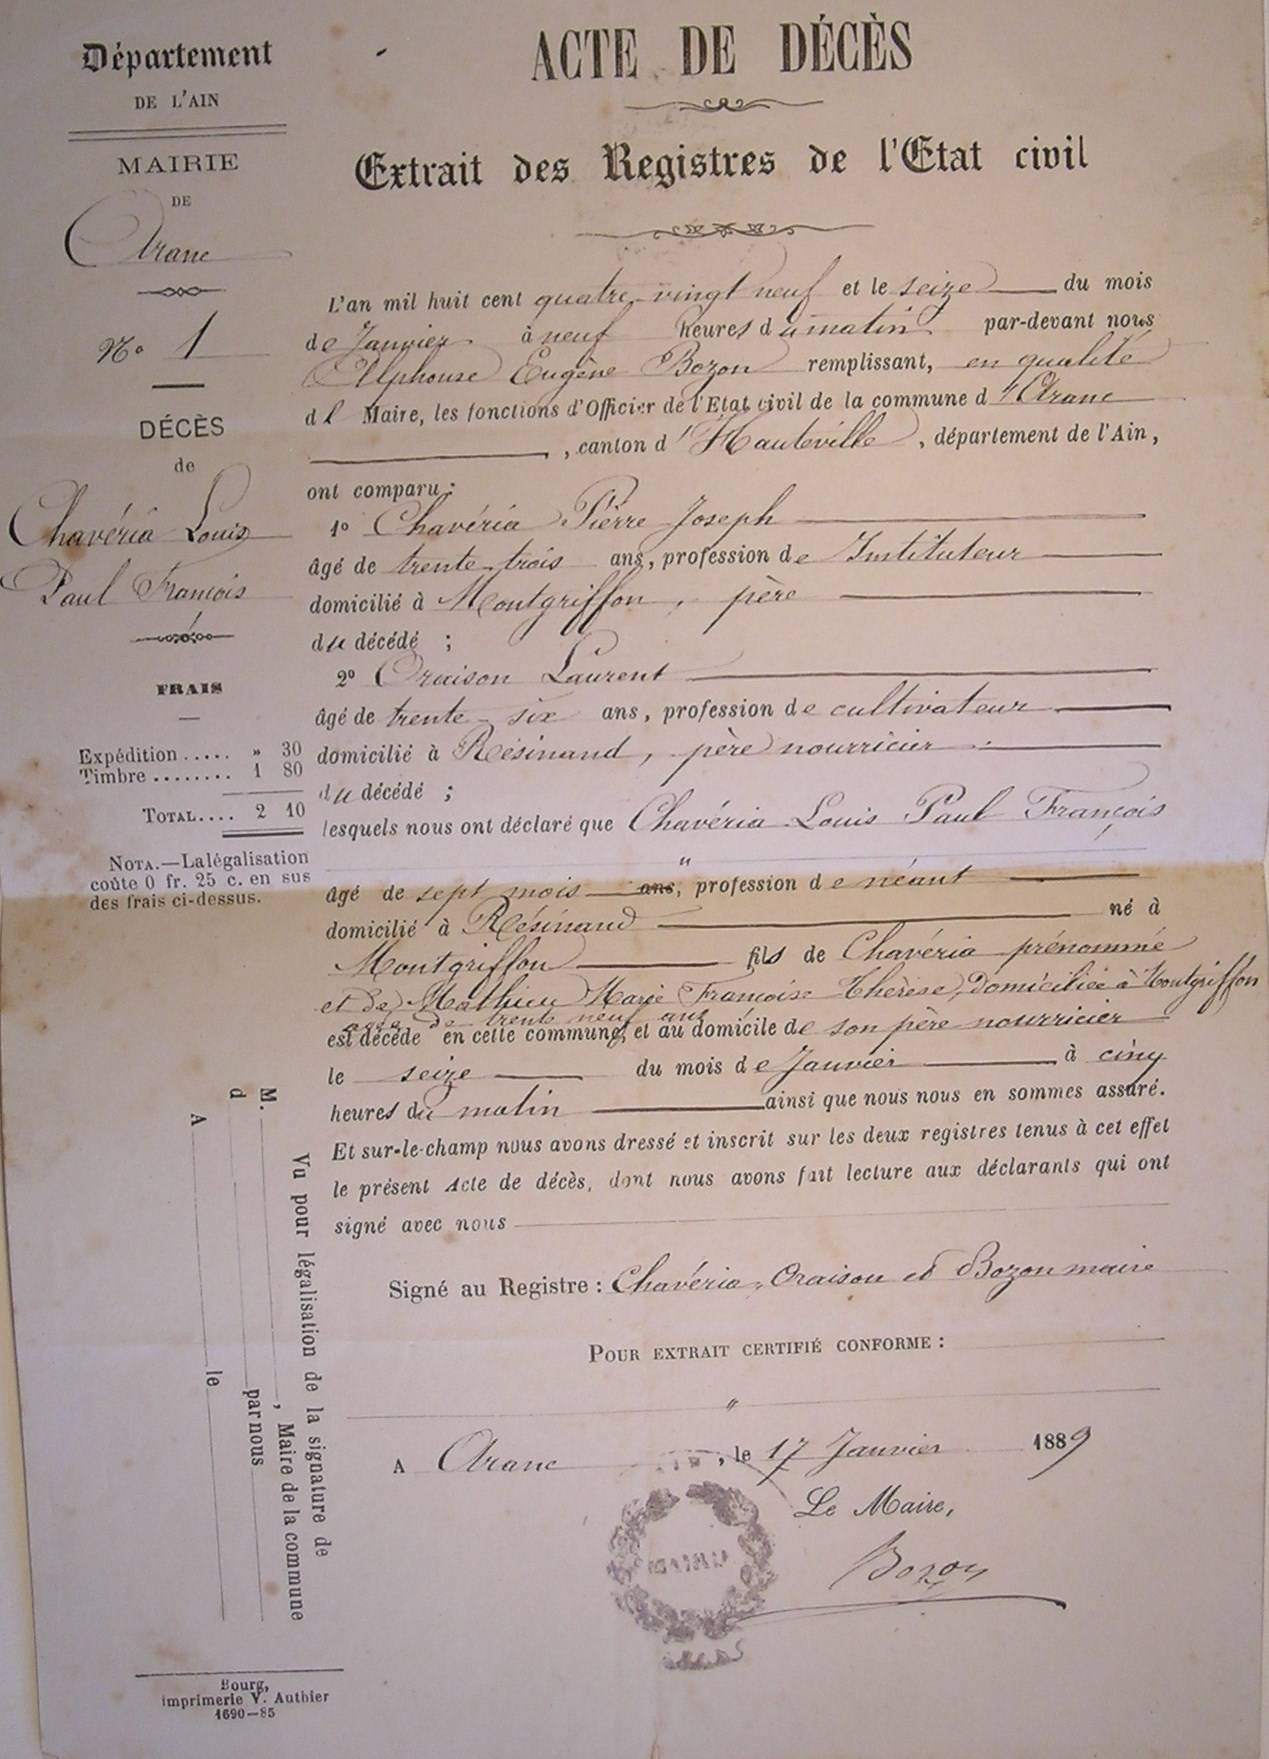 Département
DE L'AIN
MAIRIE
DE
Aranc
N° 1
DÉCÈS
de
Chavéria Louis
Paul François
FRAIS
Expédition ..... " 30
Timbre ........ 1 80
TOTAL.... 2 10
NOTA.—La légalisation
coûte 0 fr. 25 c. en sus
des frais ci-dessus.
ACTE DE DÉCÈS
Extrait des Registres de l'Etat civil
L'an mil huit cent quatre-vingt neuf et le seize du mois
de Janvier à neuf heures du matin par-devant nous
Alphonse Eugène Bozon remplissant, en qualité
de Maire, les fonctions d'Officier de l'Etat civil de la commune d'Aranc
, canton d'Hauteville, département de l'Ain,
ont comparu :
1° Chavéria Pierre Joseph
âgé de trente-trois ans, profession de Instituteur
domicilié à Montgriffon, père
du décédé ;
2° Oraison Laurent
âgé de trente-six ans, profession de cultivateur
domicilié à Résinand, père nourricier
du décédé ;
lesquels nous ont déclaré que Chavéria Louis Paul François
"
âgé de sept mois ans, profession de néant
domicilié à Résinand né à
Montgriffon fils de Chavéria prénommé
et de Mathieu Marie Françoise Thérèse, domiciliée à Montgriffon
âgée de trente neuf ans
est décédé en cette commune, et au domicile de son père nourricier
le seize du mois de Janvier à cinq
heures du matin ainsi que nous nous en sommes assuré.
Et sur-le-champ nous avons dressé et inscrit sur les deux registres tenus à cet effet
le présent Acte de décès, dont nous avons fait lecture aux déclarants qui ont
signé avec nous
Signé au Registre : Chavéria, Oraison et Bozon maire
POUR EXTRAIT CERTIFIÉ CONFORME :
"
A Aranc, le 17 Janvier 1889
Le Maire,
Bozon
MAIRIE
Vu pour légalisation de la signature de
M. , Maire de la commune
d par nous
A le
Bourg,
imprimerie V. Authier
1690—85